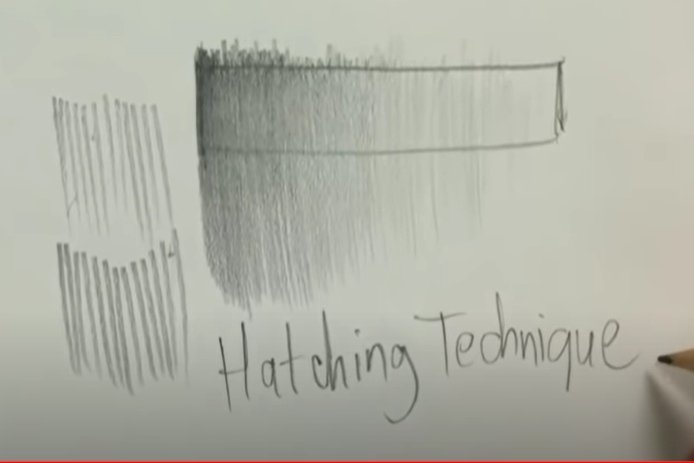 Hatching Technique